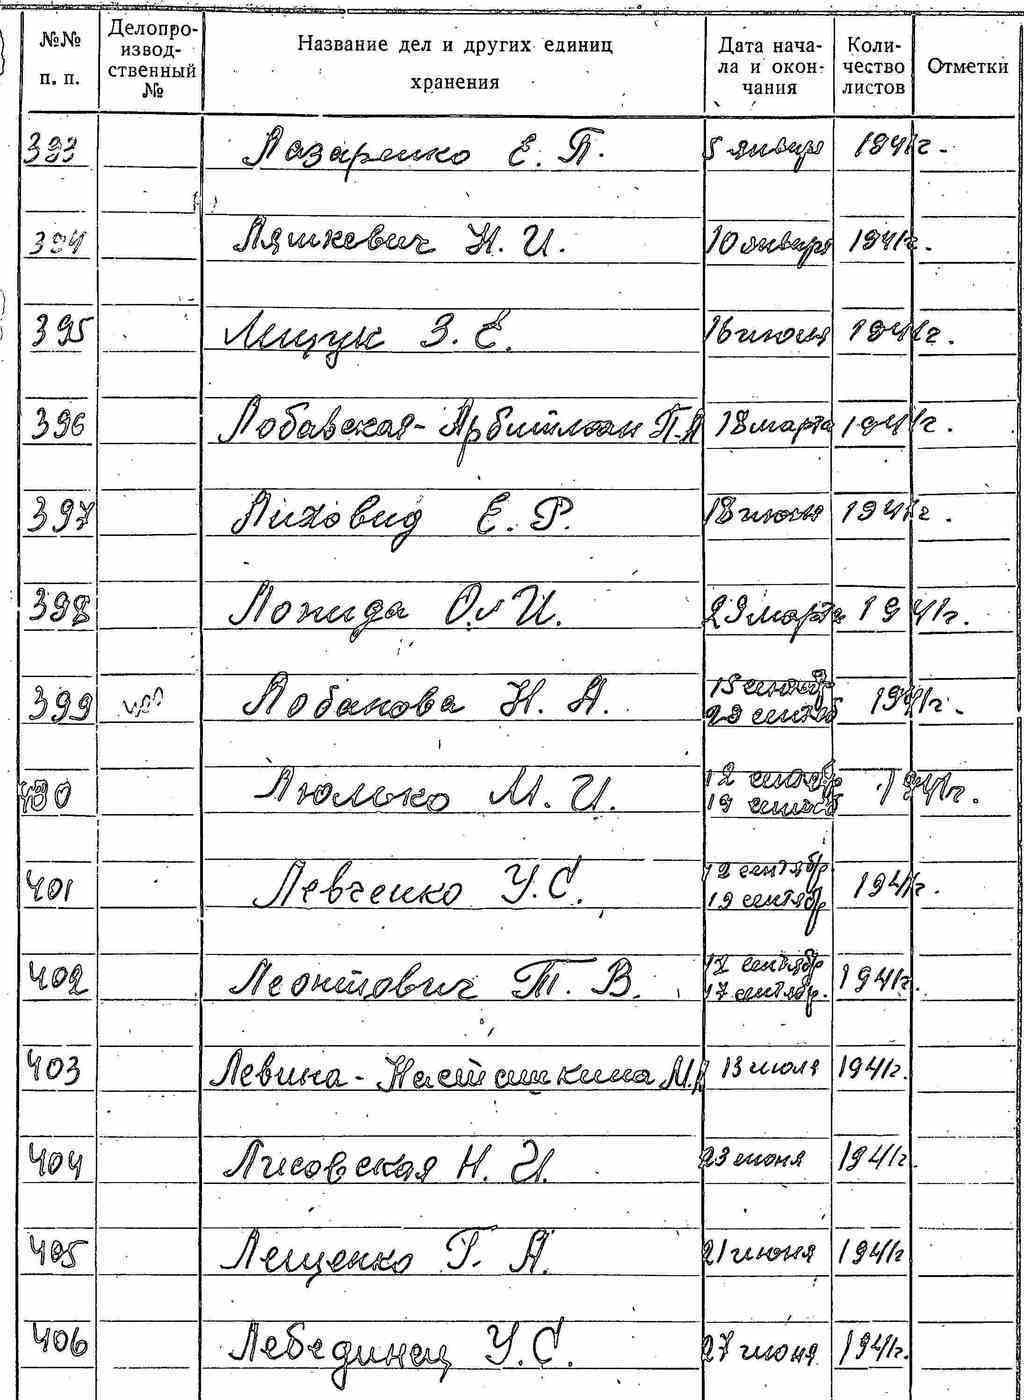 №№ п. п.
Делопро-
извод-
ственный
№
Название дел и других единиц
хранения
Дата нача-
ла и окон-
чания
Коли-
чество
листов
Отметки
393 Лазаренко Е. П. 5 января 1941г.
394 Ляшкевич Н. И. 10 января 1941г.
395 Лищук З. Е. 16 июня 1941г.
396 Лобавская-Арбитман П.А 18 марта 1941г.
397 Лиховид Е. Р. 18 июня 1941г.
398 О. И. 29 марта 1941г.
399 400 Лобанова Н. А. 15 сентяб
29 сентяб 1941г.
400 Люлько М. И. 12 сентябр
19 сентяб 1941г.
401 Левченко У. С. 12 сентябр
19 сентябр 1941г.
402 Леонтович Т. В. 12 сентябр
17 сентябр. 1941г.
403 Левина - М. 13 июля 1941г.
404 Лисовская Н. И. 23 июня 1941г.
405 Лещенко Г. А. 21 июня 1941г
406 Лебединец У. С. 27 июня 1941г.